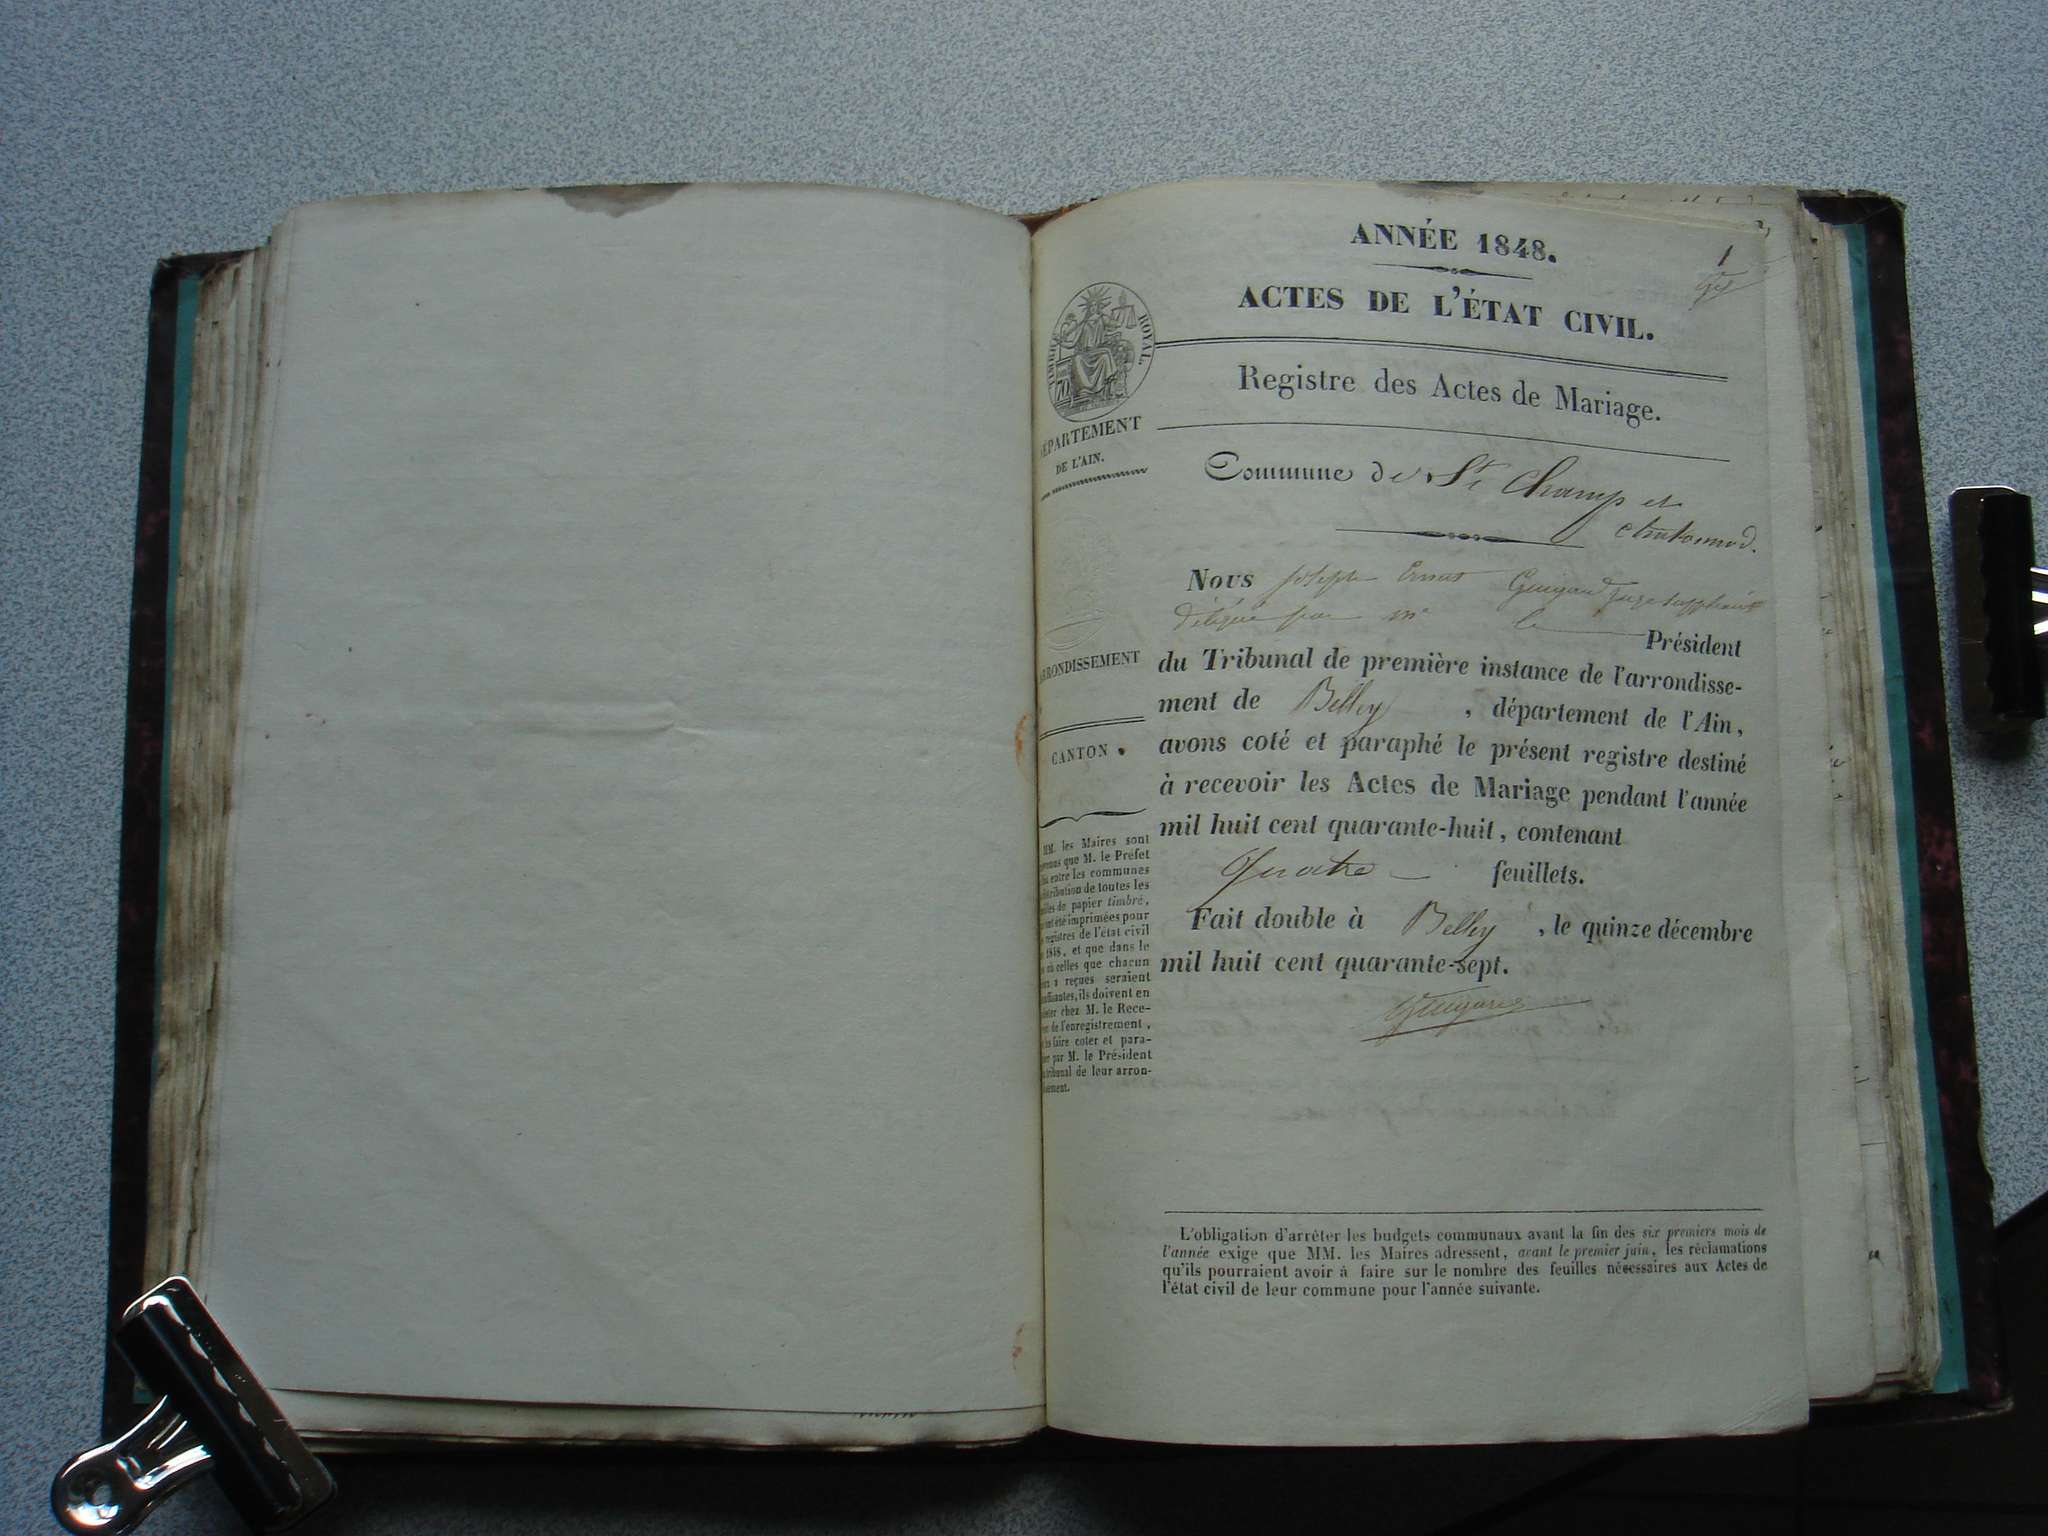 ANNÉE 1848.
1
ACTES DE L'ÉTAT CIVIL.
TIMBRE ROYAL
Registre des Actes de Mariage.
DÉPARTEMENT
DE L'AIN.
Commune de St Champ et
chatonnod.
Nous Joseph Ernest Guigard juge suppléant
délégué par Mr le Président
du Tribunal de première instance de l'arrondisse-
ment de Belley, département de l'Ain,
avons coté et paraphé le présent registre destiné
à recevoir les Actes de Mariage pendant l'année
mil huit cent quarante-huit, contenant
Quatre feuillets.
Fait double à Belley, le quinze décembre
mil huit cent quarante-sept.
ARRONDISSEMENT
CANTON.
MM. les Maires sont
que M. le Préfet
entre les communes
distribution de toutes les
de papier timbré,
été imprimées pour
registres de l'état civil
1848, et que dans le
où celles que chacun
a reçues seraient
ils doivent en
chez M. le Rece-
de l'enregistrement,
faire coter et para-
par M. le Président
tribunal de leur arron-
L'obligation d'arrêter les budgets communaux avant la fin des six premiers mois de
l'année exige que MM. les Maires adressent, avant le premier juin, les réclamations
qu'ils pourraient avoir à faire sur le nombre des feuilles nécessaires aux Actes de
l'état civil de leur commune pour l'année suivante.